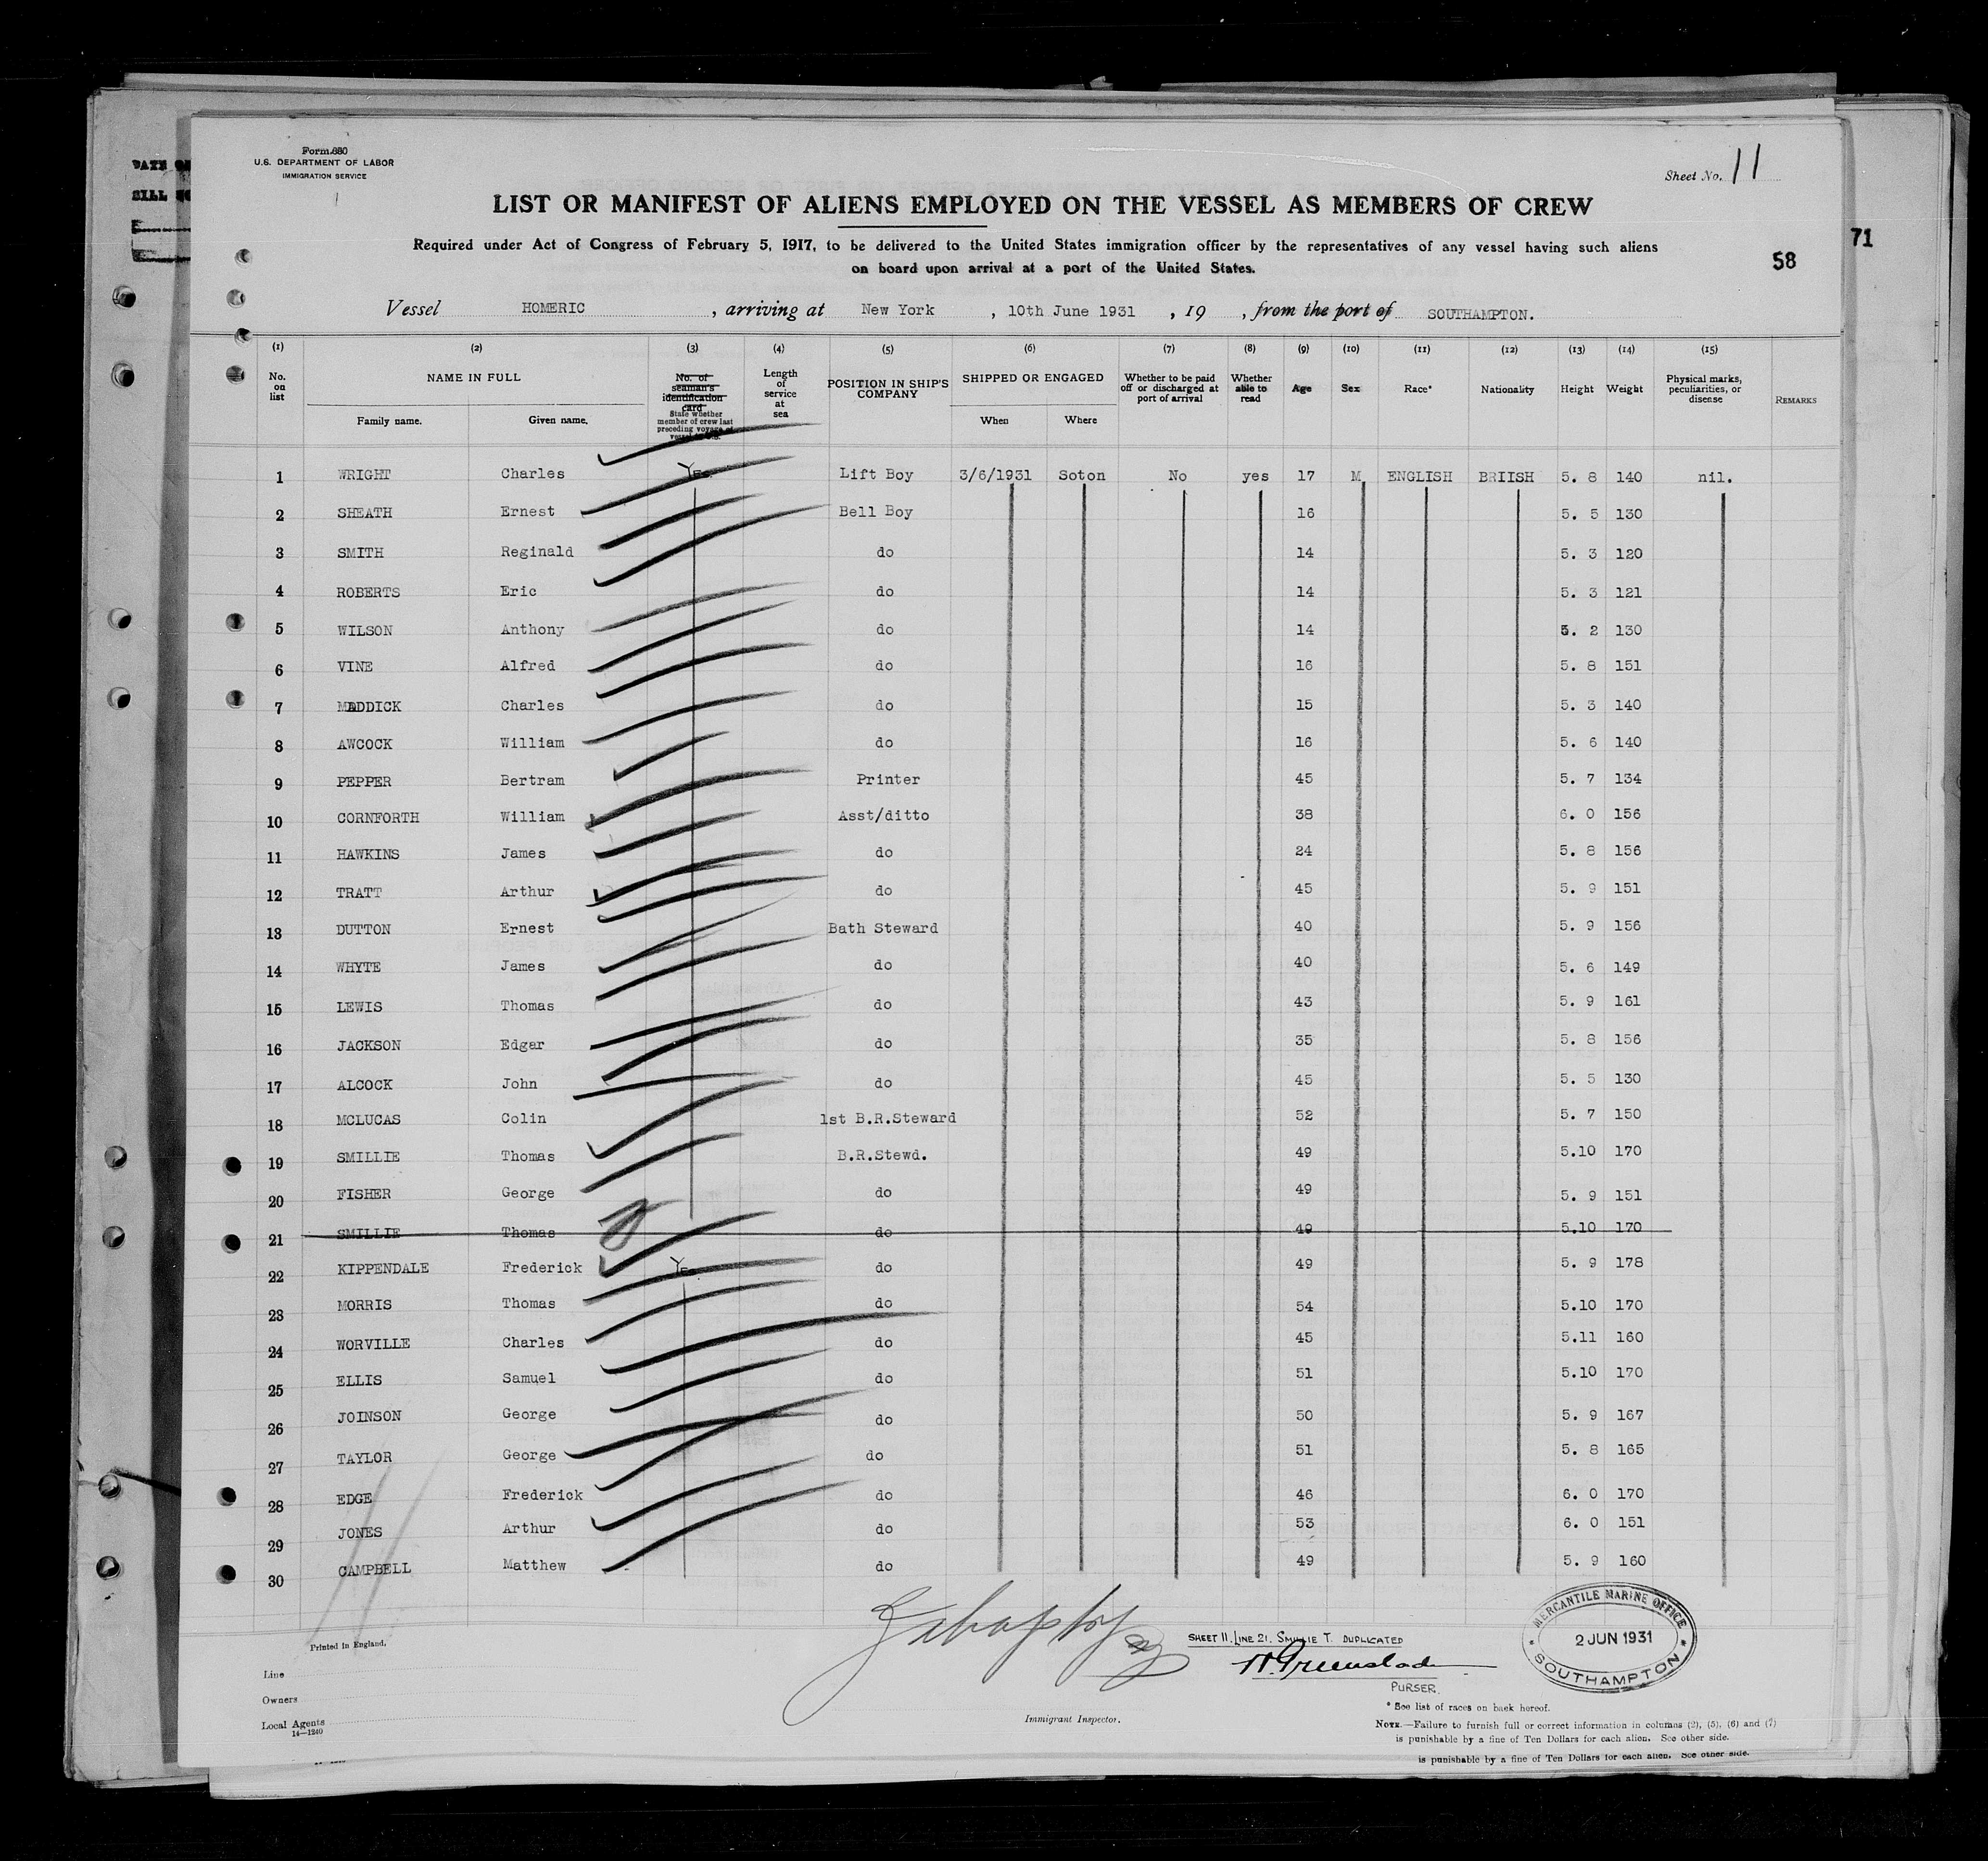 Form 680
U.S. DEPARTMENT OF LABOR
IMMIGRATION SERVICE
Sheet No. 11
LIST OR MANIFEST OF ALIENS EMPLOYED ON THE VESSEL AS MEMBERS OF CREW
Required under Act of Congress of February 5, 1917, to be delivered to the United States immigration officer by the representatives of any vessel having such aliens
on board upon arrival at a port of the United States.
58
71
Vessel HOMERIC , arriving at New York , 10th June 1931 , 19 , from the port of SOUTHAMPTON.
(1) (2) (3) (4) (5) (6) (7) (8) (9) (10) (11) (12) (13) (14) (15)
No. on list NAME IN FULL Family name. Given name. No. of seaman's identification card State whether member of crew last preceding voyage of vessel to U.S. Length of service at sea POSITION IN SHIP'S COMPANY SHIPPED OR ENGAGED When Where Whether to be paid off or discharged at port of arrival Whether able to read Age Sex Race* Nationality Height Weight Physical marks, peculiarities, or disease REMARKS
1 WRIGHT Charles Yes Lift Boy 3/6/1931 Soton No yes 17 M ENGLISH BRIISH 5. 8 140 nil.
2 SHEATH Ernest Bell Boy 16 5. 5 130
3 SMITH Reginald do 14 5. 3 120
4 ROBERTS Eric do 14 5. 3 121
5 WILSON Anthony do 14 5. 2 130
6 VINE Alfred do 16 5. 8 151
7 MADDICK Charles do 15 5. 3 140
8 AWCOCK William do 16 5. 6 140
9 PEPPER Bertram Printer 45 5. 7 134
10 CORNFORTH William Asst/ditto 38 6. 0 156
11 HAWKINS James do 24 5. 8 156
12 TRATT Arthur do 45 5. 9 151
13 DUTTON Ernest Bath Steward 40 5. 9 156
14 WHYTE James do 40 5. 6 149
15 LEWIS Thomas do 43 5. 9 161
16 JACKSON Edgar do 35 5. 8 156
17 ALCOCK John do 45 5. 5 130
18 MCLUCAS Colin 1st B.R.Steward 52 5. 7 150
19 SMILLIE Thomas B.R.Stewd. 49 5.10 170
20 FISHER George do 49 5. 9 151
21 SMILLIE Thomas do 49 5.10 170
22 KIPPENDALE Frederick Yes do 49 5. 9 178
23 MORRIS Thomas do 54 5.10 170
24 WORVILLE Charles do 45 5.11 160
25 ELLIS Samuel do 51 5.10 170
26 JOINSON George do 50 5. 9 167
27 TAYLOR George do 51 5. 8 165
28 EDGE Frederick do 46 6. 0 170
29 JONES Arthur do 53 6. 0 151
30 CAMPBELL Matthew do 49 5. 9 160
Printed in England.
Line
Owners
Local Agents
14—1240
Immigrant Inspector.
SHEET 11. LINE 21. SMILLIE T. DUPLICATED
PURSER.
MERCANTILE MARINE OFFICE
2 JUN 1931
SOUTHAMPTON
* See list of races on back hereof.
NOTE.—Failure to furnish full or correct information in columns (2), (5), (6) and (7)
is punishable by a fine of Ten Dollars for each alien. See other side.
is punishable by a fine of Ten Dollars for each alien. See other side.